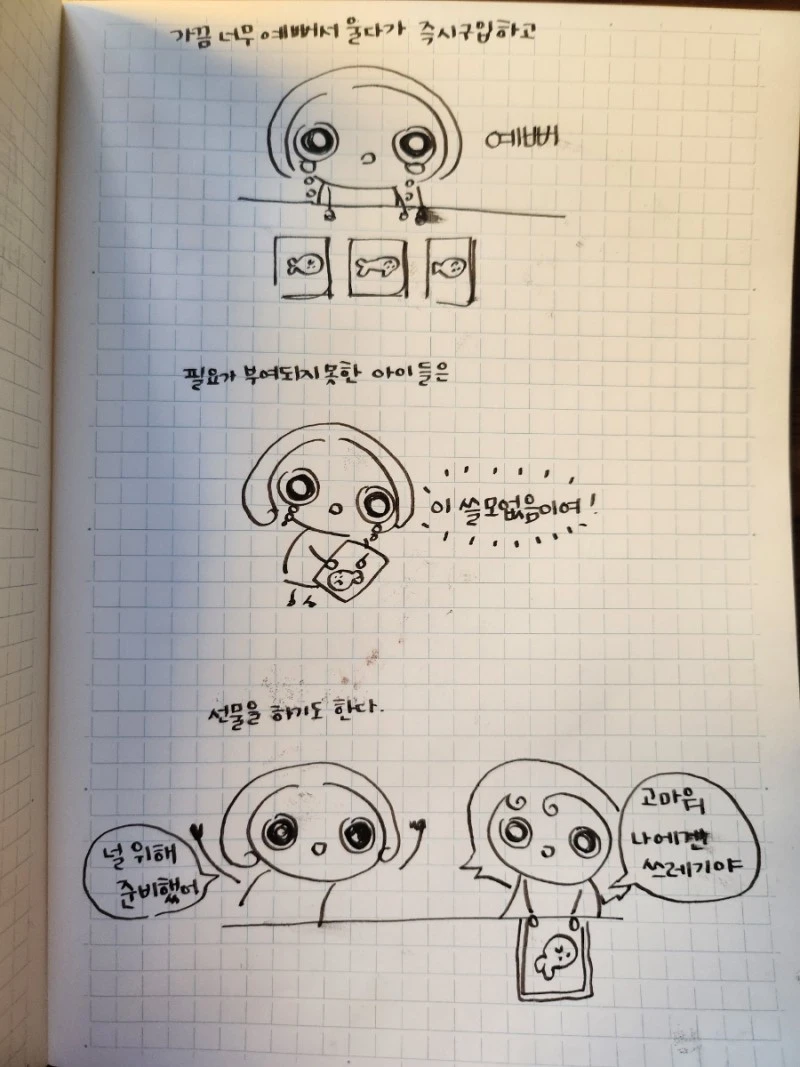 가끔 너무 예뻐서 울다가 즉시구입하고
예뻐
필요가 부여되지 못한 아이들은
이 쓸모없음이여!
선물을 하기도 한다.
널 위해
준비했어
고마워
나에겐
쓰레기야